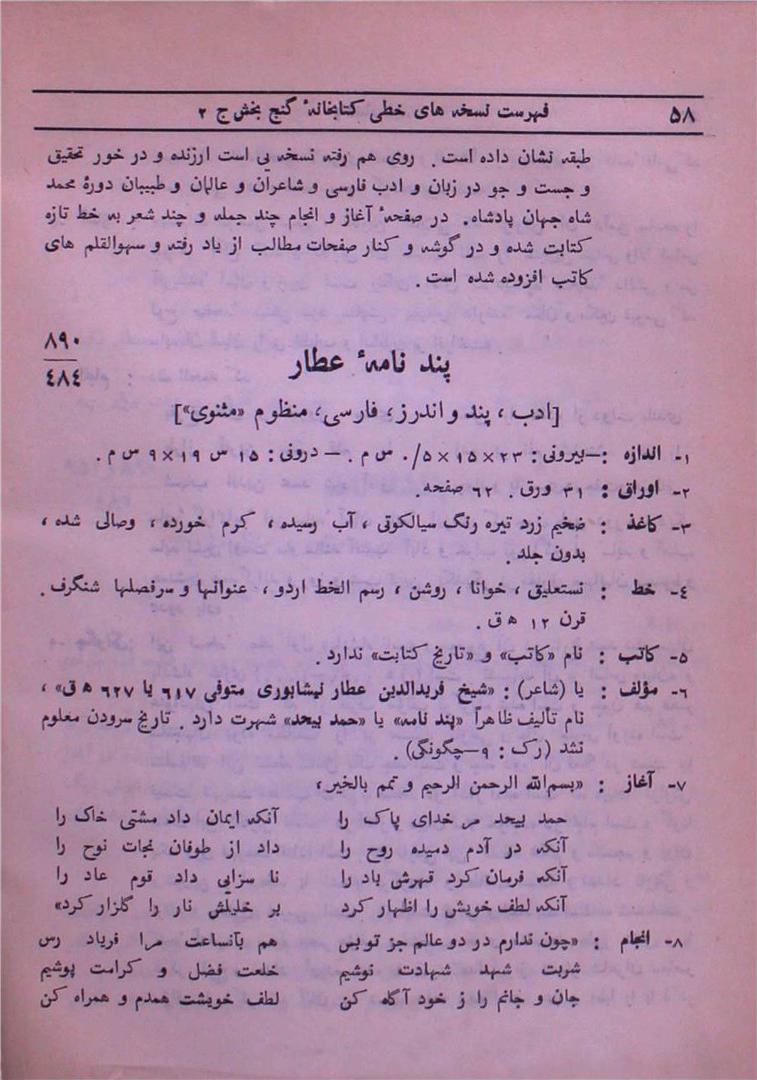 ۵۸ فهرست نسخه های خطی کتابخانهٔ گنج بخش ج ۲
طبقه نشان داده است. روی هم رفته نسخه یی است ارزنده و در خور تحقیق
و جست و جو در زبان و ادب فارسی و شاعران و عالمان و طبیبان دورهٔ محمد
شاه جهان پادشاه. در صفحهٔ آغاز و انجام چند جمله و چند شعر به خط تازه
کتابت شده و در گوشه و کنار صفحات مطالب از یاد رفته و سهوالقلم های
کاتب افزوده شده است.
۸۹۰
۴۸۴
پند نامهٔ عطار
[ادب، پند و اندرز، فارسی، منظوم «مثنوی»]
۱- اندازه :-بیرونی: ۲۳×۱۵×۰/۵ س م.- درونی: ۱۵ س ۱۹×۹ س م.
۲- اوراق : ۳۱ ورق. ۶۲ صفحه.
۳- کاغذ : ضخیم زرد تیره رنگ سیالکوتی، آب رسیده، کرم خورده، وصالی شده،
بدون جلد.
۴- خط : نستعلیق، خوانا، روشن، رسم الخط اردو، عنوانها و سرفصلها شنگرف.
قرن ۱۲ ه ق.
۵- کاتب : نام «کاتب» و «تاریخ کتابت» ندارد.
۶- مؤلف : یا (شاعر): «شیخ فریدالدین عطار نیشابوری متوفی ۶۱۷ یا ۶۲۷ ه ق»،
نام تألیف ظاهراً «پند نامه» یا «حمد بیحد» شهرت دارد. تاریخ سرودن معلوم
نشد (رک : ۹-چگونگی)
۷- آغاز : «بسم الله الرحمن الرحیم و تمم بالخیر،
حمد بیحد مر خدای پاک را آنکه ایمان داد مشتی خاک را
آنکه در آدم دمیده روح را داد از طوفان نجات نوح را
آنکه فرمان کرد قهرش باد را نا سزایی داد قوم عاد را
آنکه لطف خویش را اظهار کرد بر خلیلش نار را گلزار کرد»
۸- انجام : «چون ندارم در دو عالم جز تو بس هم بآنساعت مرا فریاد رس
شربت شهد شهادت نوشیم خلعت فضل و کرامت پوشیم
جان و جانم را ز خود آگاه کن لطف خویشت همدم و همراه کن